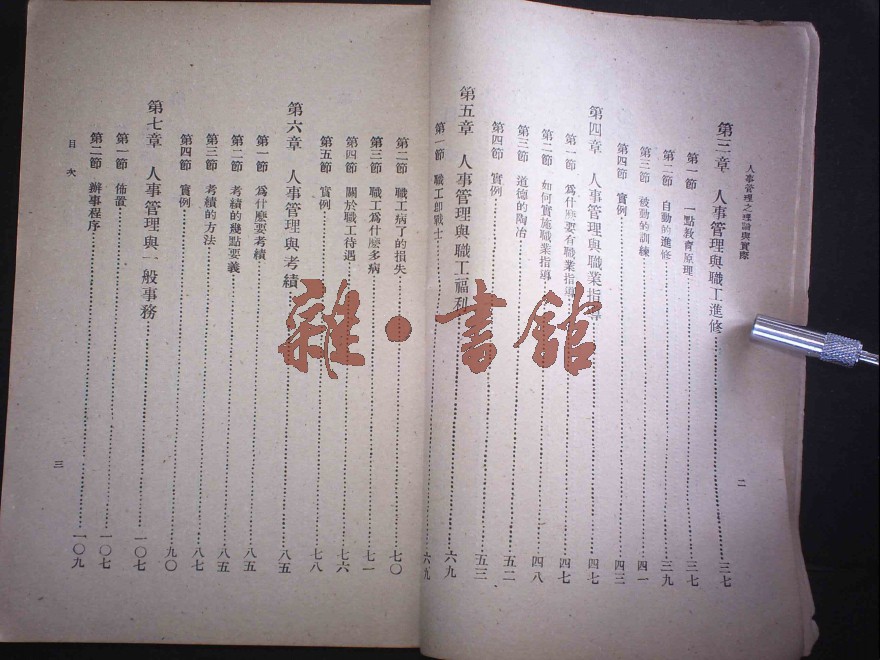 人事管理之理論與實際
二
第三章 人事管理與職工進修 三七
第一節 一點教育原理 三七
第二節 自動的進修 三九
第三節 被動的訓練 四一
第四節 實例 四三
第四章 人事管理與職業指導 四七
第一節 爲什麼要有職業指導 四七
第二節 如何實施職業指導 四八
第三節 道德的陶冶 五二
第四節 實例 五三
第五章 人事管理與職工福利 六九
第一節 職工卽戰士 六九
第二節 職工病了的損失 七〇
第三節 職工爲什麼多病 七一
第四節 關於職工待遇 七六
第五節 實例 七八
第六章 人事管理與考績 八五
第一節 爲什麼要考績 八五
第二節 考績的幾點要義 八五
第三節 考績的方法 八七
第四節 實例 九〇
第七章 人事管理與一般事務 一〇七
第一節 佈置 一〇七
第二節 辦事程序 一〇九
目次
三
雜·書館